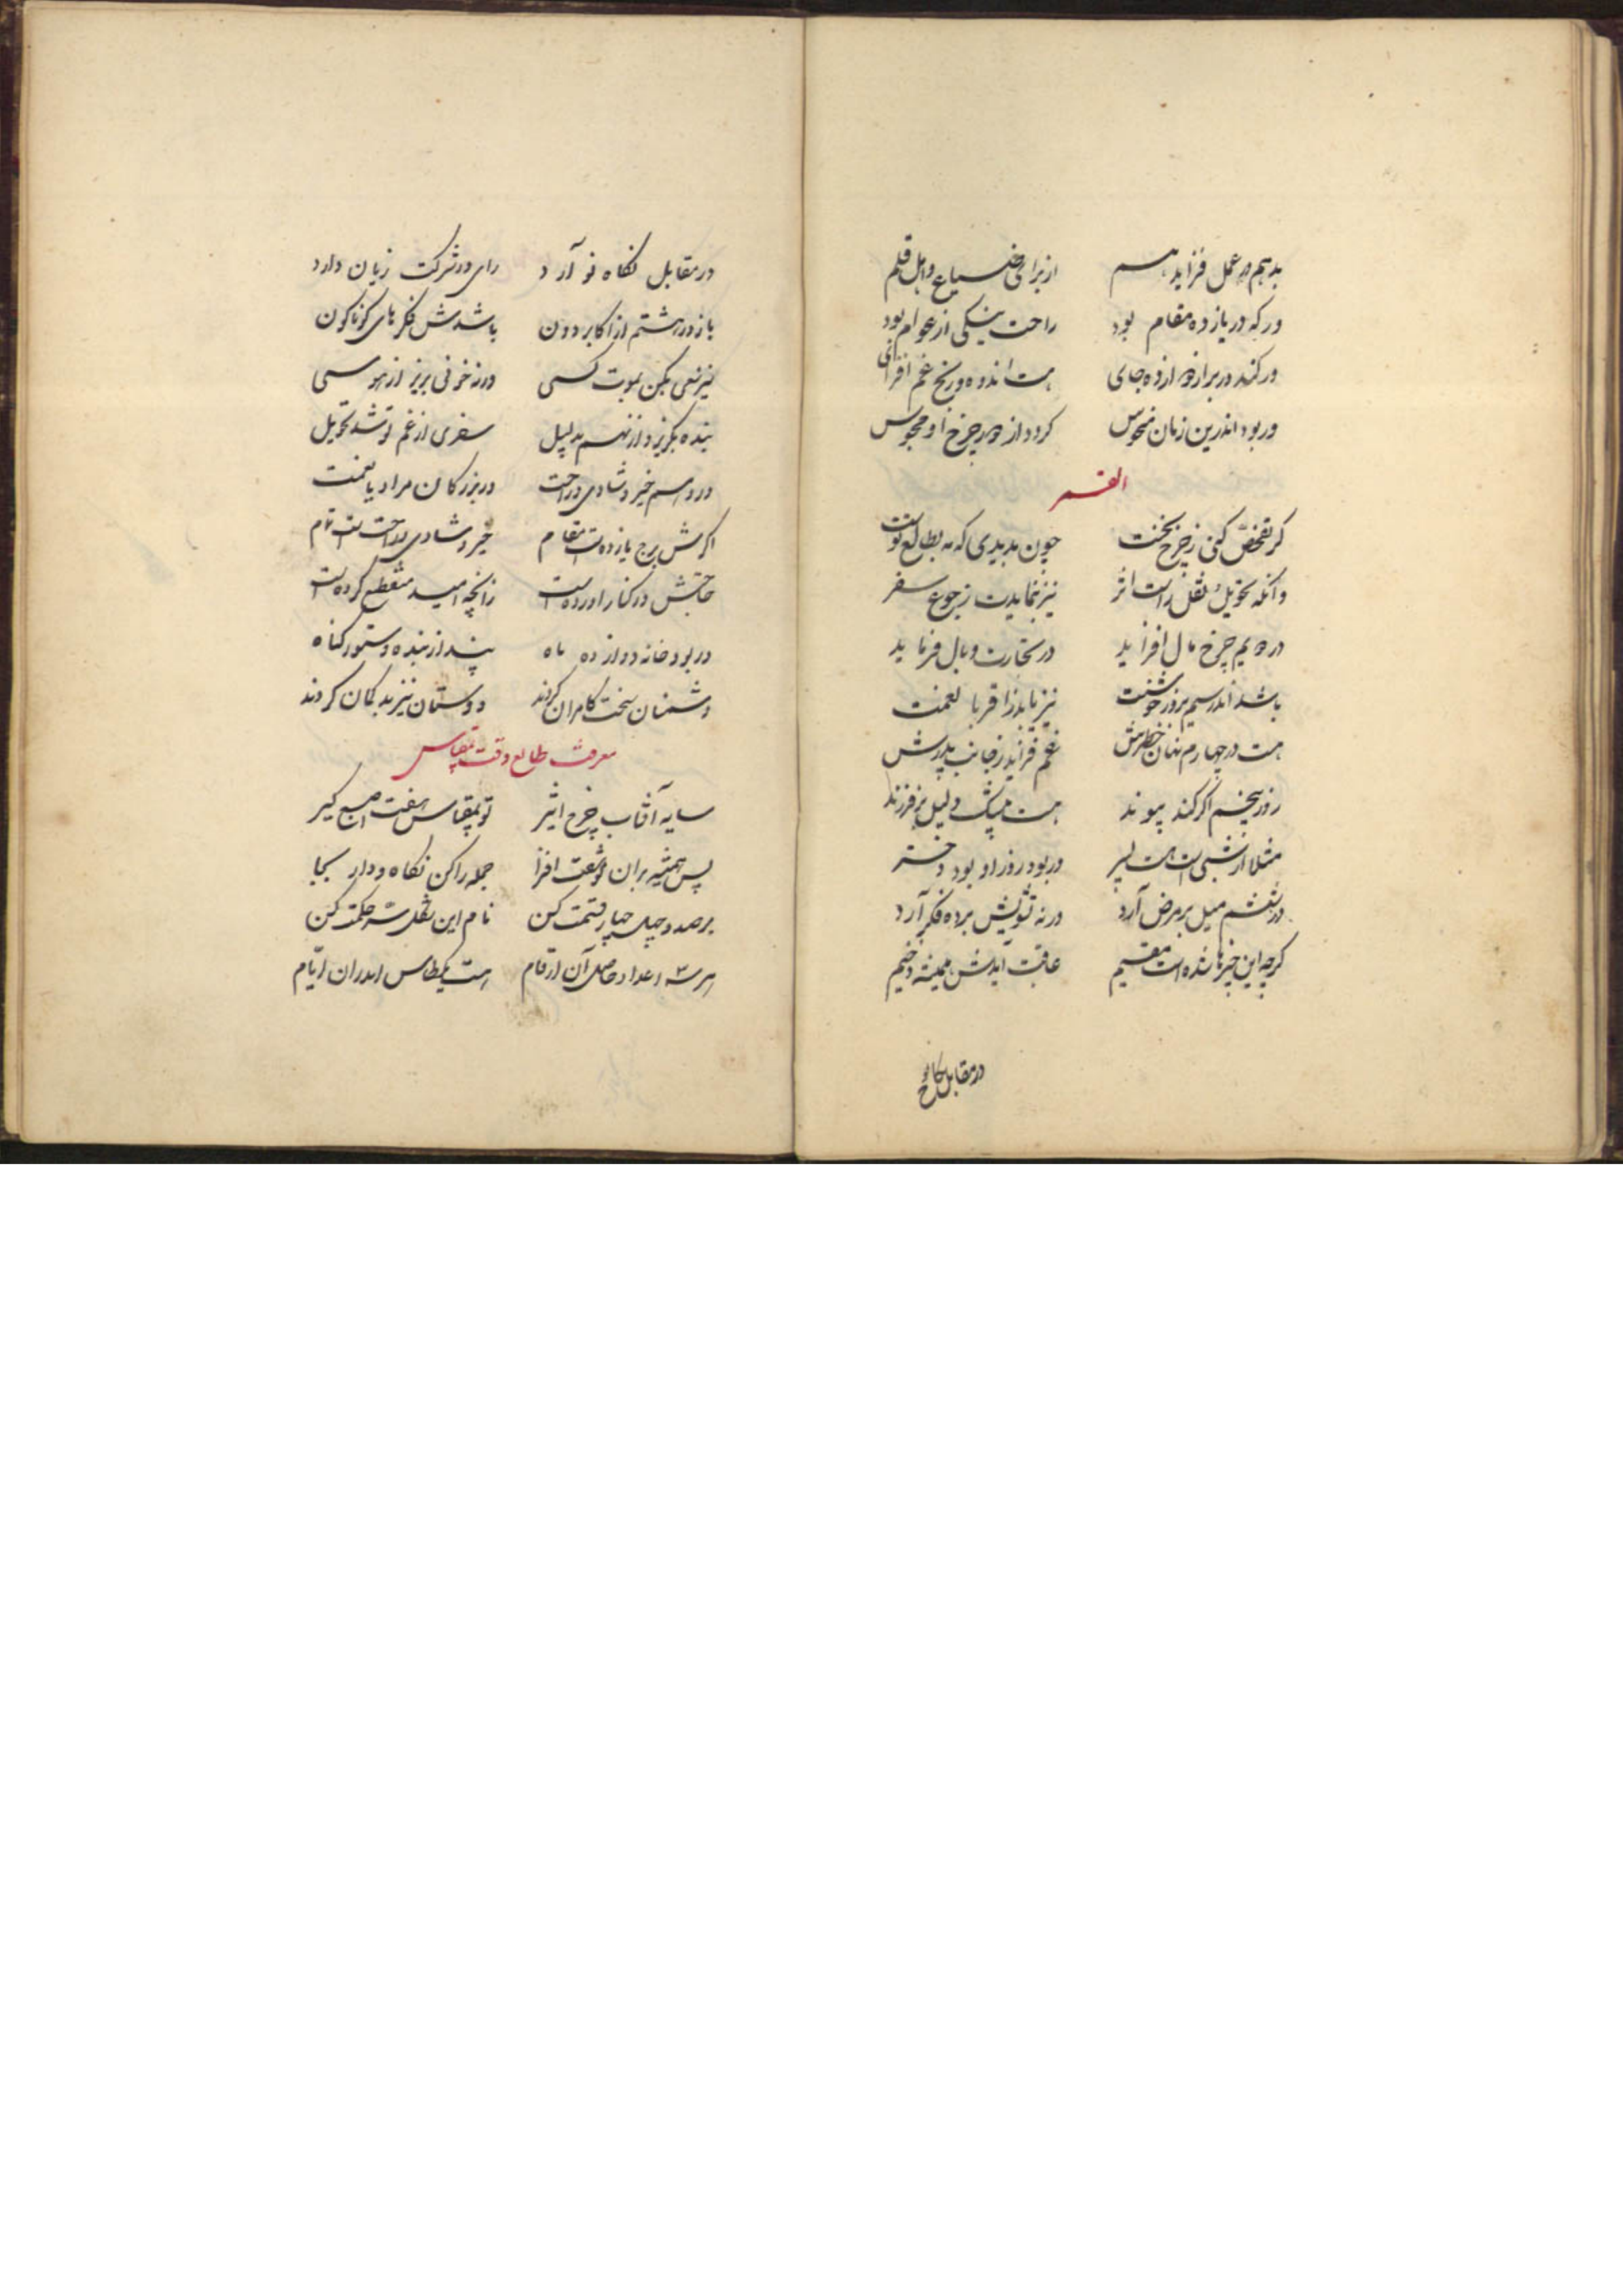 بدهم در عمل فزاید هم از برای ضیاع و اهل قلم
ور که در یازده مقام بود راحت نیکی از عوام بود
ور کند در برازده جای هست اندوه و رنج غم افزای
ور بود اندرین زمان منحوس کردد از چرخ او محبوس
القمر
کر تفحص کنی ز چرخ نخست چون بدیدی که مه بطالع تست
وانکه تحویل نقل راست اثر نیز بنمایدت رجوع سفر
در دویم چرخ مال افزاید در تجارت وبال فرماید
باشد اندر سیم بروز خوشت نیز یابد ز اقربا نعمت
هست در چهارم نهان خطرش غم فزاید ز جانب پدرش
روز پنجم اکر کند پیوند هست بیشک دلیل بر فرزند
مثلا ار شبی است هست پسر ور بود روز او بود دختر
در ششم میل بر مرض آرد ورنه تشویش برده فکر آرد
کرچه این چیزها شده است مقیم عاقبت آیدش همیشه وخیم
در مقابل نکاه
در مقابل نکاه نو آرد رای در شرکت زیان دارد
باز در هشتم از اکابر دون باشدش فکرهای کوناکون
نیز سعی بکن بموت کسی ورنه خونی بریز از هوسی
بنده بکریزد از نهم بدلیل سفری از غم تو شد تحویل
در دهم خیر و شادی و راحت در بزرکان مراد با نعمت
اکرش برج یازده است مقام خیر و شادی و راحت است تمام
حاجتش در کنار آورده است زانچه امید منقطع کرده است
ور بود خانه دوازده ماه بیند از بنده و ستور کناه
دشمنان سخت کامران کردند دوستان نیز بدکمان کردند
معرفت طالع وقت بمقیاس
سایه آفتاب چرخ اثیر تو بمقیاس هفت اصبع کیر
پس همیشه بران دو شصت افزا جمله را کن نکاه و دار بجا
بر صد و چهل چهار قسمت کن نام این نقل سر حکمت کن
هر سه اعداد حاصل آن ارقام هست اندران ایام